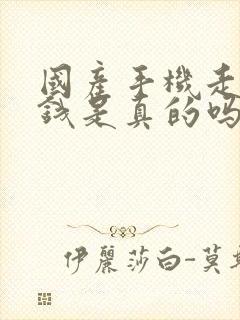 國產手機走
錢是真的吗
伊麗莎白-莫